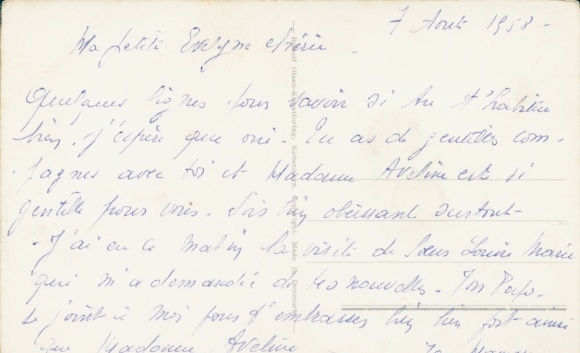 7 Août 1958 -
Ma petite Evelyne chérie -
Quelques lignes pour savoir si tu t'habitue
bien. j'espère que oui. Tu as de gentilles com-
pagnes avec toi et Madame Aveline est si
gentille pour vous. Sois bien obéissante surtout -
- J'ai eu ce matin la visite de Soeur Louise Marie
qui m'a demandée de tes nouvelles - Ton Papa
se joint à moi pour t'embrasser bien bien fort ainsi
que Madame Aveline